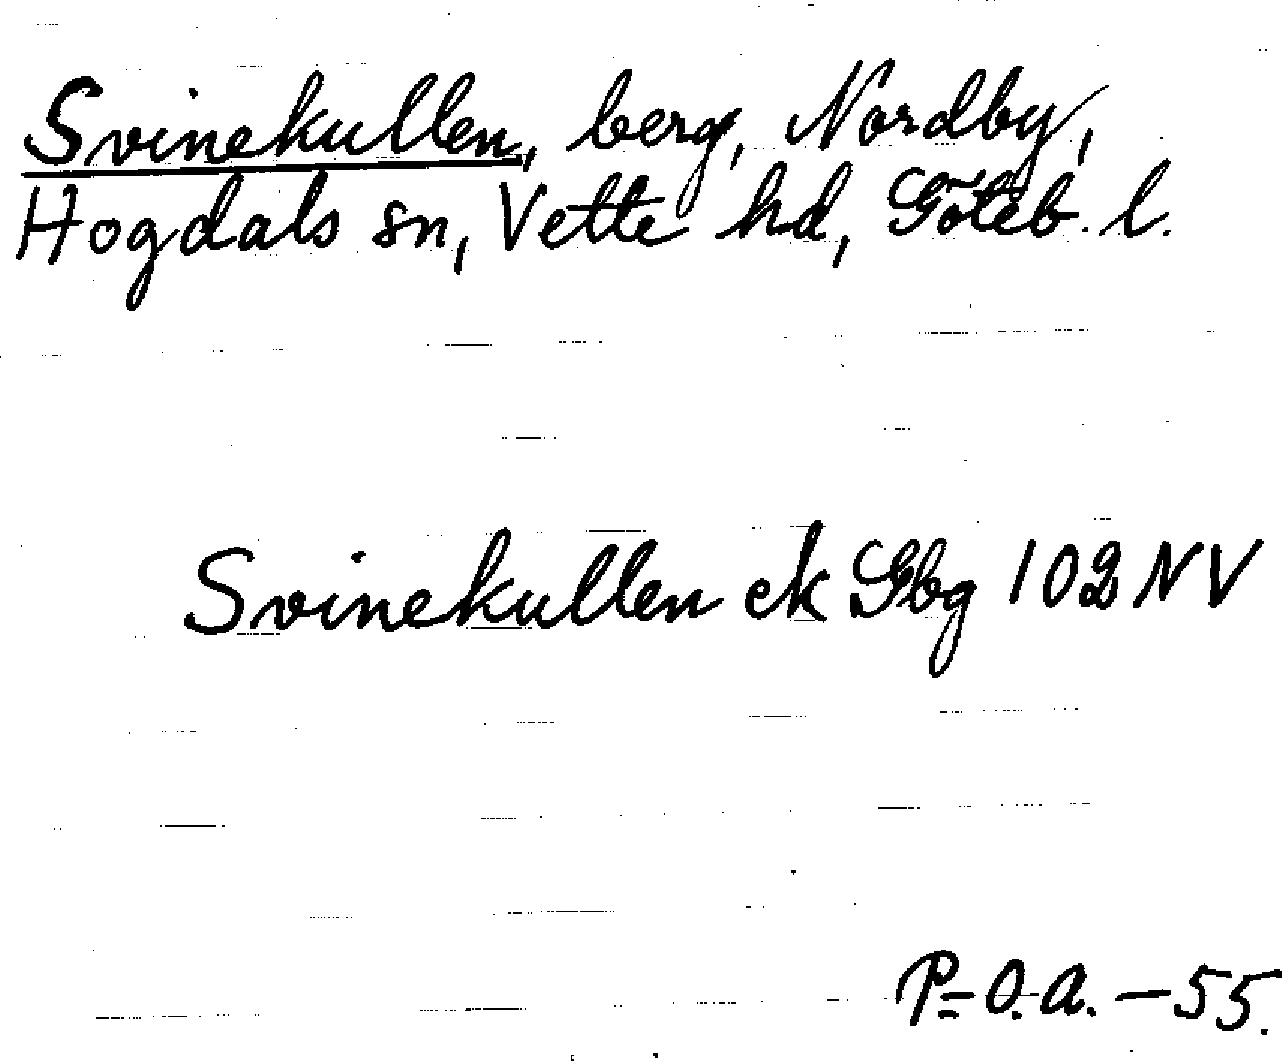 Svinekullen, berg, Nordby,
Hogdals sn, Vette hd, Göteb. l.
Svinekullen ek Gbg 102 NV
P-O.A. - 55.